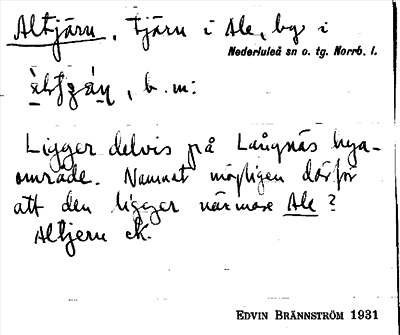 Altjärn, tjärn i Ale, by i
Nederluleå sn o. tg. Norrb. l.
b. m:
Ligger delvis på Långnäs bya-
område. Namnet möjligen därför
att den ligger närmare Ale?
Altjern ek.
EDVIN BRÄNNSTRÖM 1931